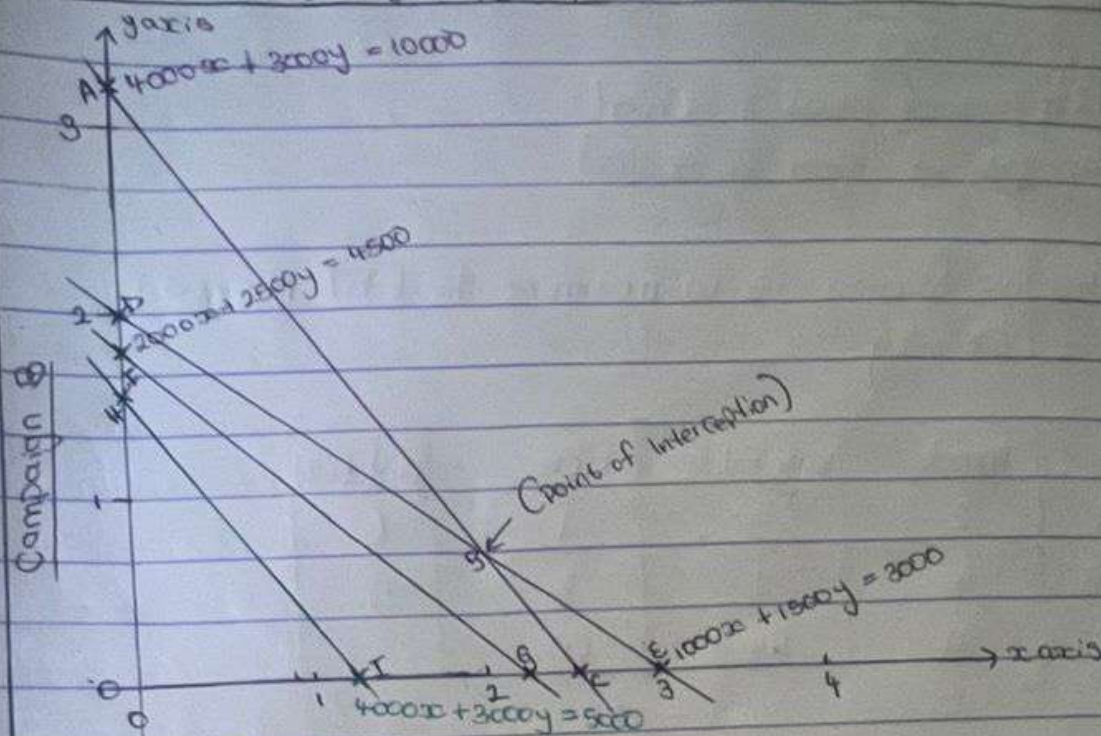 y axis
A 4000x + 3000y = 10000
3
2000x + 2500y = 4500
2 D
F
H
Campaign B
1
(point of Interception)
B
1000x + 1500y = 3000
I G C E
x axis
0 1 2 3 4
0
4000x + 3000y = 5000